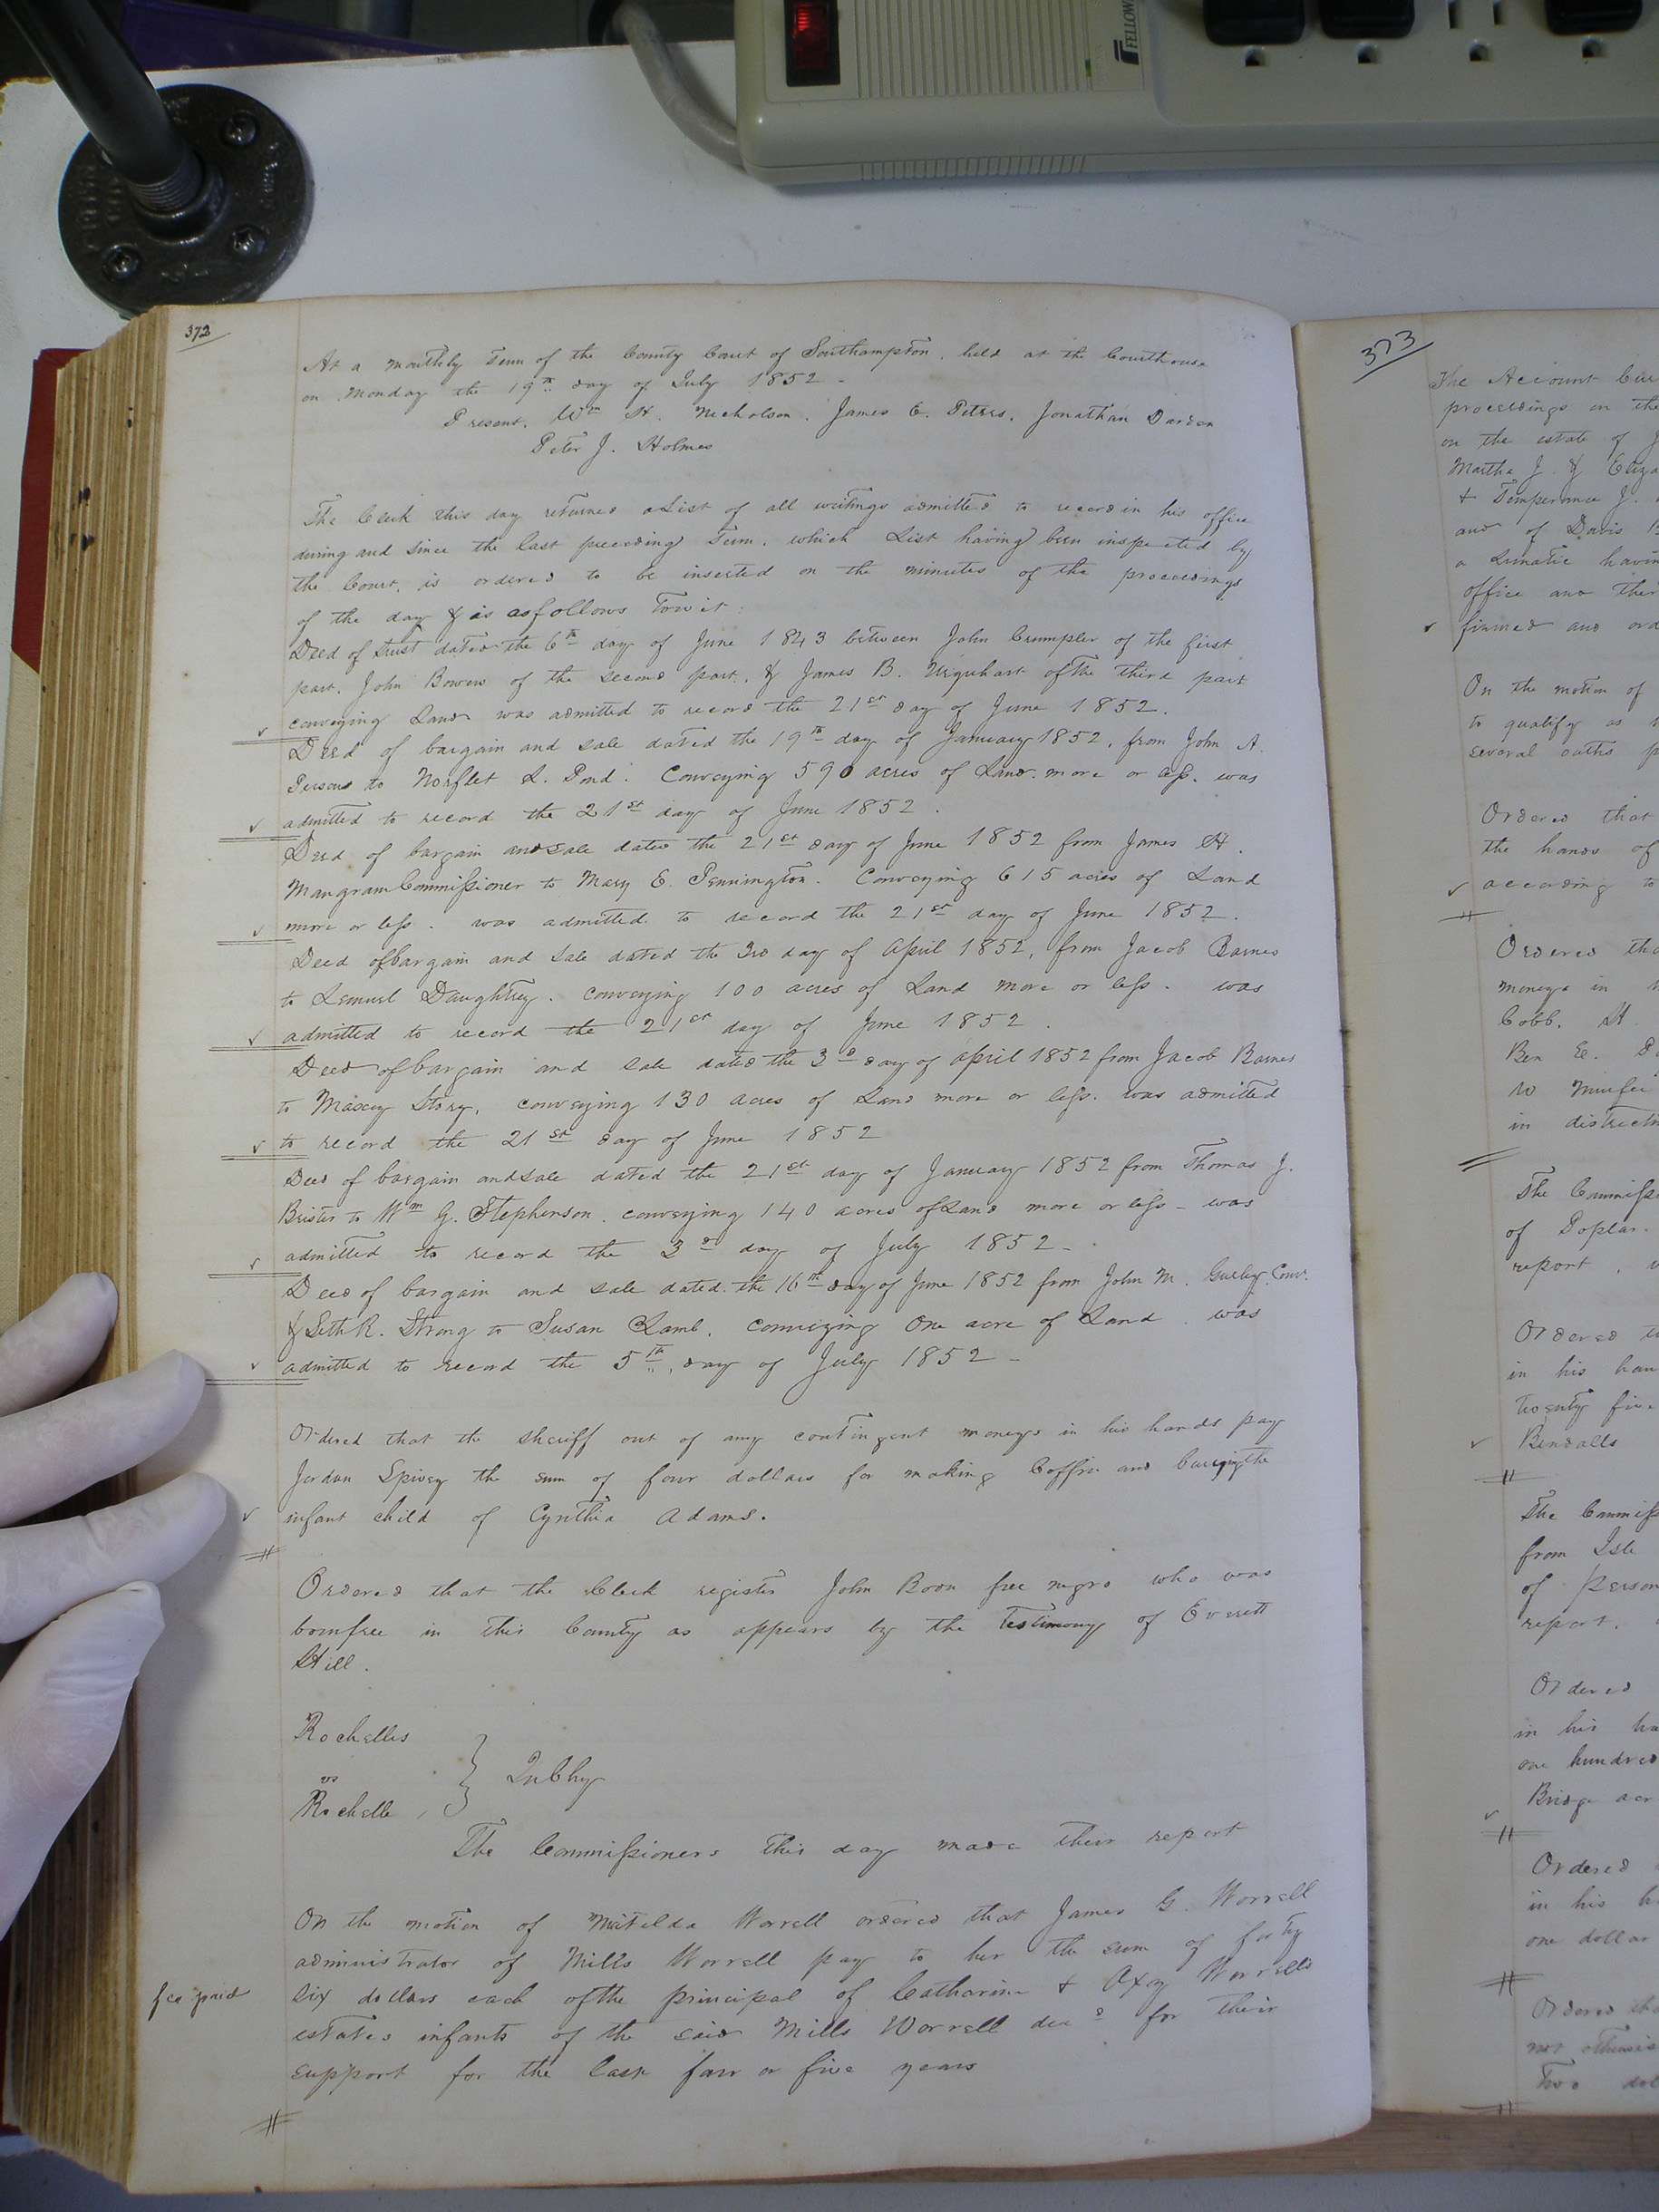 FELLOW
372
At a monthly Term of the County Court of Southampton, held at the Courthouse
on Monday the 19th day of July 1852 -
Present, Wm H. Nicholson, James E. Peters, Jonathan Darden
Peter J. Holmes
The Clerk this day returned a List of all writings admitted to record in his office
during and since the last preceding Term, which List having been inspected by
the Court, is ordered to be inserted on the minutes of the proceedings
of the day & is as follows Towit:
Deed of trust dated the 6th day of June 1843 between John Crumpler of the first
part, John Bowers of the second part, & James B. Urquhart of the third part
conveying Land was admitted to record the 21st day of June 1852.
Deed of bargain and sale dated the 19th day of January 1852, from John A.
Persons to Norflet L. Pond. Conveying 590 acres of Land more or less. was
admitted to record the 21st day of June 1852.
Deed of bargain and sale dated the 21st day of June 1852 from James H.
Mangram Commissioner to Mary E. Pennington. Conveying 615 acres of Land
more or less. was admitted to record the 21st day of June 1852.
Deed of bargain and sale dated the 3rd day of April 1852, from Jacob Barnes
to Lemuel Daughtrey. conveying 100 acres of Land more or less. was
admitted to record the 21st day of June 1852.
Deed of bargain and sale dated the 3d day of April 1852 from Jacob Barnes
to Massey Story, conveying 130 acres of Land more or less. was admitted
to record the 21st day of June 1852
Deed of bargain and sale dated the 21st day of January 1852 from Thomas J.
Brister to Wm G. Stephenson. conveying 140 acres of Land more or less - was
admitted to record the 3d day of July 1852 -
Deed of bargain and sale dated the 16th day of June 1852 from John M. Gurley Comr.
& Seth R. Strong to Susan Lamb. conveying One acre of Land. was
admitted to record the 5th day of July 1852 -
Ordered that the sheriff out of any contingent moneys in his hands pay
Jordan Spivey the sum of four dollars for making Coffin and burying the
infant child of Cynthia Adams.
Ordered that the Clerk register John Boon free negro who was
born free in this County as appears by the testimony of Everett
Hill.
Rochelles
vs
Rochelle
} In Chy
The Commissioners this day made their report
On the motion of Matilda Worrell ordered that James G. Worrell
administrator of Mills Worrell pay to her the sum of forty
fee paid six dollars each of the principal of Catharine & Axey Worrells
estates infants of the said Mills Worrell decd for their
support for the last four or five years
373
The Account
proceedings on the
on the estate of J
Martha J. & Eliza
& Temperance J.
and of Davis
a Lunatic havin
office and ther
firmed and ord
On the motion of
to qualify as
several oaths p
Ordered that
the hands of
according to
Ordered tha
moneys in
Cobb. H.
Ben E.
to
in
The Commiss
of Poplar
report,
Ordered
in his han
Twenty five
Bendalls
The Commiss
from Isle
of Person
report.
Ordered
in his ha
one hundred
Bridge
Ordered
in his h
one dollar
Ordered tha
not otherwis
Two dol